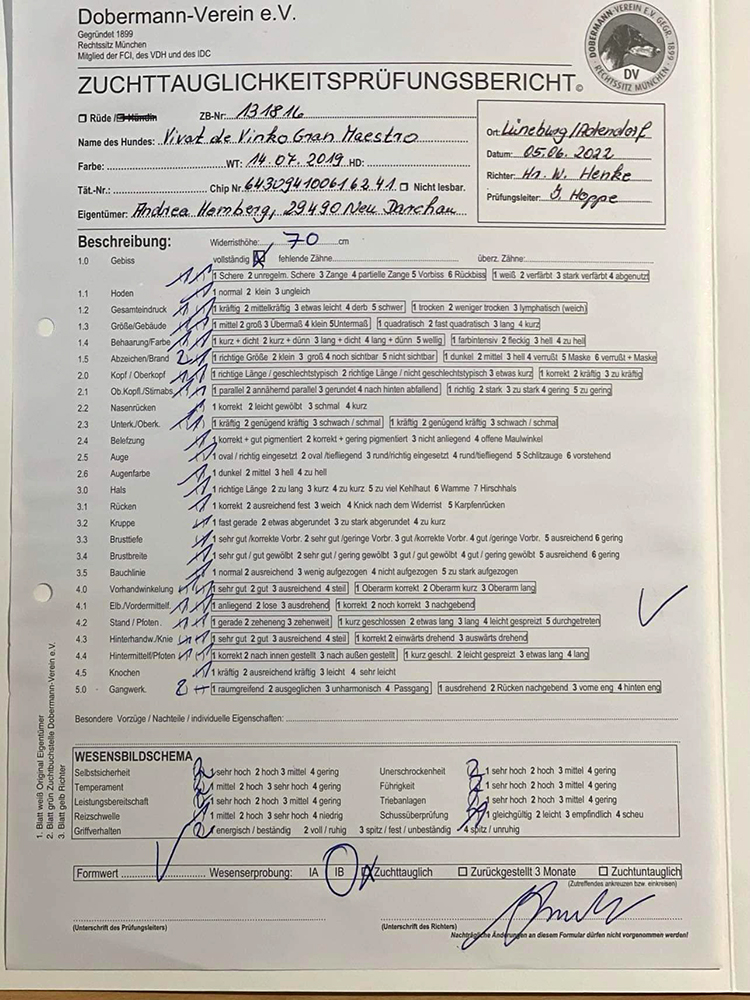 Dobermann-Verein e.V.
Gegründet 1899
Rechtssitz München
Mitglied der FCI, des VDH und des IDC
DOBERMANN-VEREIN E.V. GEGR. 1899
DV
RECHTSSITZ MÜNCHEN
ZUCHTTAUGLICHKEITSPRÜFUNGSBERICHT©
Rüde / Hündin ZB-Nr. 131816
Name des Hundes: Vivat de Vinko Gran Maestro
Farbe: WT: 14.07.2019 HD:
Tät.-Nr.: Chip Nr. 643094100616241 Nicht lesbar.
Eigentümer: Andrea Hamberg, 29490 Neu Darchau
Ort: Lüneburg/Rotendorf
Datum: 05.06.2022
Richter: Hr. W. Henke
Prüfungsleiter: J. Hoppe
Beschreibung: Widerristhöhe: 70 cm
1.0 Gebiss vollständig fehlende Zähne: überz. Zähne:
1 Schere 2 unregelm. Schere 3 Zange 4 partielle Zange 5 Vorbiss 6 Rückbiss 1 weiß 2 verfärbt 3 stark verfärbt 4 abgenutzt
1.1 Hoden 1 normal 2 klein 3 ungleich
1.2 Gesamteindruck 1 kräftig 2 mittelkräftig 3 etwas leicht 4 derb 5 schwer 1 trocken 2 weniger trocken 3 lymphatisch (weich)
1.3 Größe/Gebäude 1 mittel 2 groß 3 Übermaß 4 klein 5 Untermaß 1 quadratisch 2 fast quadratisch 3 lang 4 kurz
1.4 Behaarung/Farbe 1 kurz + dicht 2 kurz + dünn 3 lang + dicht 4 lang + dünn 5 wellig 1 farbintensiv 2 fleckig 3 hell 4 zu hell
1.5 Abzeichen/Brand 2 1 richtige Größe 2 klein 3 groß 4 noch sichtbar 5 nicht sichtbar 1 dunkel 2 mittel 3 hell 4 verrußt 5 Maske 6 verrußt + Maske
2.0 Kopf / Oberkopf 1 richtige Länge / geschlechtstypisch 2 richtige Länge / nicht geschlechtstypisch 3 etwas kurz 1 korrekt 2 kräftig 3 zu kräftig
2.1 Ob.Kopfl./Stirnabs. 1 parallel 2 annähernd parallel 3 gerundet 4 nach hinten abfallend 1 richtig 2 stark 3 zu stark 4 gering 5 zu gering
2.2 Nasenrücken 1 korrekt 2 leicht gewölbt 3 schmal 4 kurz
2.3 Unterk./Oberk. 1 kräftig 2 genügend kräftig 3 schwach / schmal 1 kräftig 2 genügend kräftig 3 schwach / schmal
2.4 Belefzung 1 korrekt + gut pigmentiert 2 korrekt + gering pigmentiert 3 nicht anliegend 4 offene Maulwinkel
2.5 Auge 1 oval / richtig eingesetzt 2 oval /tiefliegend 3 rund/richtig eingesetzt 4 rund/tiefliegend 5 Schlitzauge 6 vorstehend
2.6 Augenfarbe 1 dunkel 2 mittel 3 hell 4 zu hell
3.0 Hals 1 richtige Länge 2 zu lang 3 kurz 4 zu kurz 5 zu viel Kehlhaut 6 Wamme 7 Hirschhals
3.1 Rücken 1 korrekt 2 ausreichend fest 3 weich 4 Knick nach dem Widerrist 5 Karpfenrücken
3.2 Kruppe 1 fast gerade 2 etwas abgerundet 3 zu stark abgerundet 4 zu kurz
3.3 Brusttiefe 1 sehr gut /korrekte Vorbr. 2 sehr gut /geringe Vorbr. 3 gut /korrekte Vorbr. 4 gut /geringe Vorbr. 5 ausreichend 6 gering
3.4 Brustbreite 1 sehr gut / gut gewölbt 2 sehr gut / gering gewölbt 3 gut / gut gewölbt 4 gut / gering gewölbt 5 ausreichend 6 gering
3.5 Bauchlinie 1 normal 2 ausreichend 3 wenig aufgezogen 4 nicht aufgezogen 5 zu stark aufgezogen
4.0 Vorhandwinkelung 1 sehr gut 2 gut 3 ausreichend 4 steil 1 Oberarm korrekt 2 Oberarm kurz 3 Oberarm lang
4.1 Elb./Vordermittelf. 1 anliegend 2 lose 3 ausdrehend 1 korrekt 2 noch korrekt 3 nachgebend
4.2 Stand / Pfoten 1 gerade 2 zeheneng 3 zehenweit 1 kurz geschlossen 2 etwas lang 3 lang 4 leicht gespreizt 5 durchgetreten
4.3 Hinterhandw./Knie 1 sehr gut 2 gut 3 ausreichend 4 steil 1 korrekt 2 einwärts drehend 3 auswärts drehend
4.4 Hintermittelf/Pfoten 1 korrekt 2 nach innen gestellt 3 nach außen gestellt 1 kurz geschl. 2 leicht gespreizt 3 etwas lang 4 lang
4.5 Knochen 1 kräftig 2 ausreichend kräftig 3 leicht 4 sehr leicht
5.0 Gangwerk 2 1 raumgreifend 2 ausgeglichen 3 unharmonisch 4 Passgang 1 ausdrehend 2 Rücken nachgebend 3 vorne eng 4 hinten eng
Besondere Vorzüge / Nachteile / individuelle Eigenschaften:
1. Blatt weiß Original Eigentümer
2. Blatt grün Zuchtbuchstelle Dobermann-Verein e.V.
3. Blatt gelb Richter
WESENSBILDSCHEMA
Selbstsicherheit 1 sehr hoch 2 hoch 3 mittel 4 gering Unerschrockenheit 1 sehr hoch 2 hoch 3 mittel 4 gering
Temperament 1 mittel 2 hoch 3 sehr hoch 4 gering Führigkeit 1 sehr hoch 2 hoch 3 mittel 4 gering
Leistungsbereitschaft 1 sehr hoch 2 hoch 3 mittel 4 gering Triebanlagen 1 sehr hoch 2 hoch 3 mittel 4 gering
Reizschwelle 1 mittel 2 hoch 3 sehr hoch 4 niedrig Schussüberprüfung 1 gleichgültig 2 leicht 3 empfindlich 4 scheu
Griffverhalten 1 energisch / beständig 2 voll / ruhig 3 spitz / fest / unbeständig 4 spitz / unruhig
Formwert Wesenserprobung: IA IB Zuchttauglich Zurückgestellt 3 Monate Zuchtuntauglich
(Zutreffendes ankreuzen bzw. einkreisen)
(Unterschrift des Prüfungsleiters) (Unterschrift des Richters)
Nachträgliche Änderungen an diesem Formular dürfen nicht vorgenommen werden!